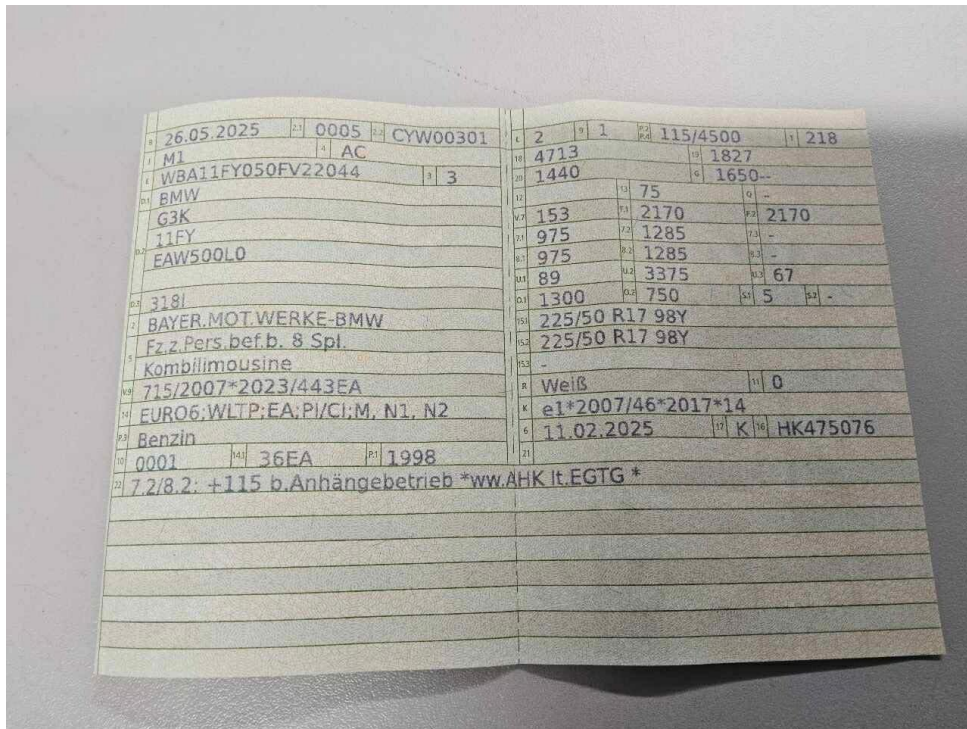 B 26.05.2025 2.1 0005 2.2 CYW00301
J M1 4 AC
E WBA11FY050FV22044 3 3
D.1 BMW
G3K
11FY
D.2 EAW500L0
D.3 318I
2 BAYER.MOT.WERKE-BMW
Fz.z.Pers.bef.b. 8 Spl.
5 Kombilimousine
V.9 715/2007*2023/443EA
14 EURO6;WLTP;EA;PI/CI;M, N1, N2
P.3 Benzin
10 0001 14.1 36EA P.1 1998
22 7.2/8.2: +115 b.Anhängebetrieb *ww.AHK lt.EGTG *
L 2 9 1 P.2 P.4 115/4500 T 218
18 4713 19 1827
20 1440 G 1650--
12 13 75 Q -
V.7 153 F.1 2170 F.2 2170
7.1 975 7.2 1285 7.3 -
8.1 975 8.2 1285 8.3 -
U.1 89 U.2 3375 U.3 67
O.1 1300 O.2 750 S.1 5 S.2 -
15.1 225/50 R17 98Y
15.2 225/50 R17 98Y
15.3 -
R Weiß 11 0
K e1*2007/46*2017*14
6 11.02.2025 17 K 16 HK475076
21